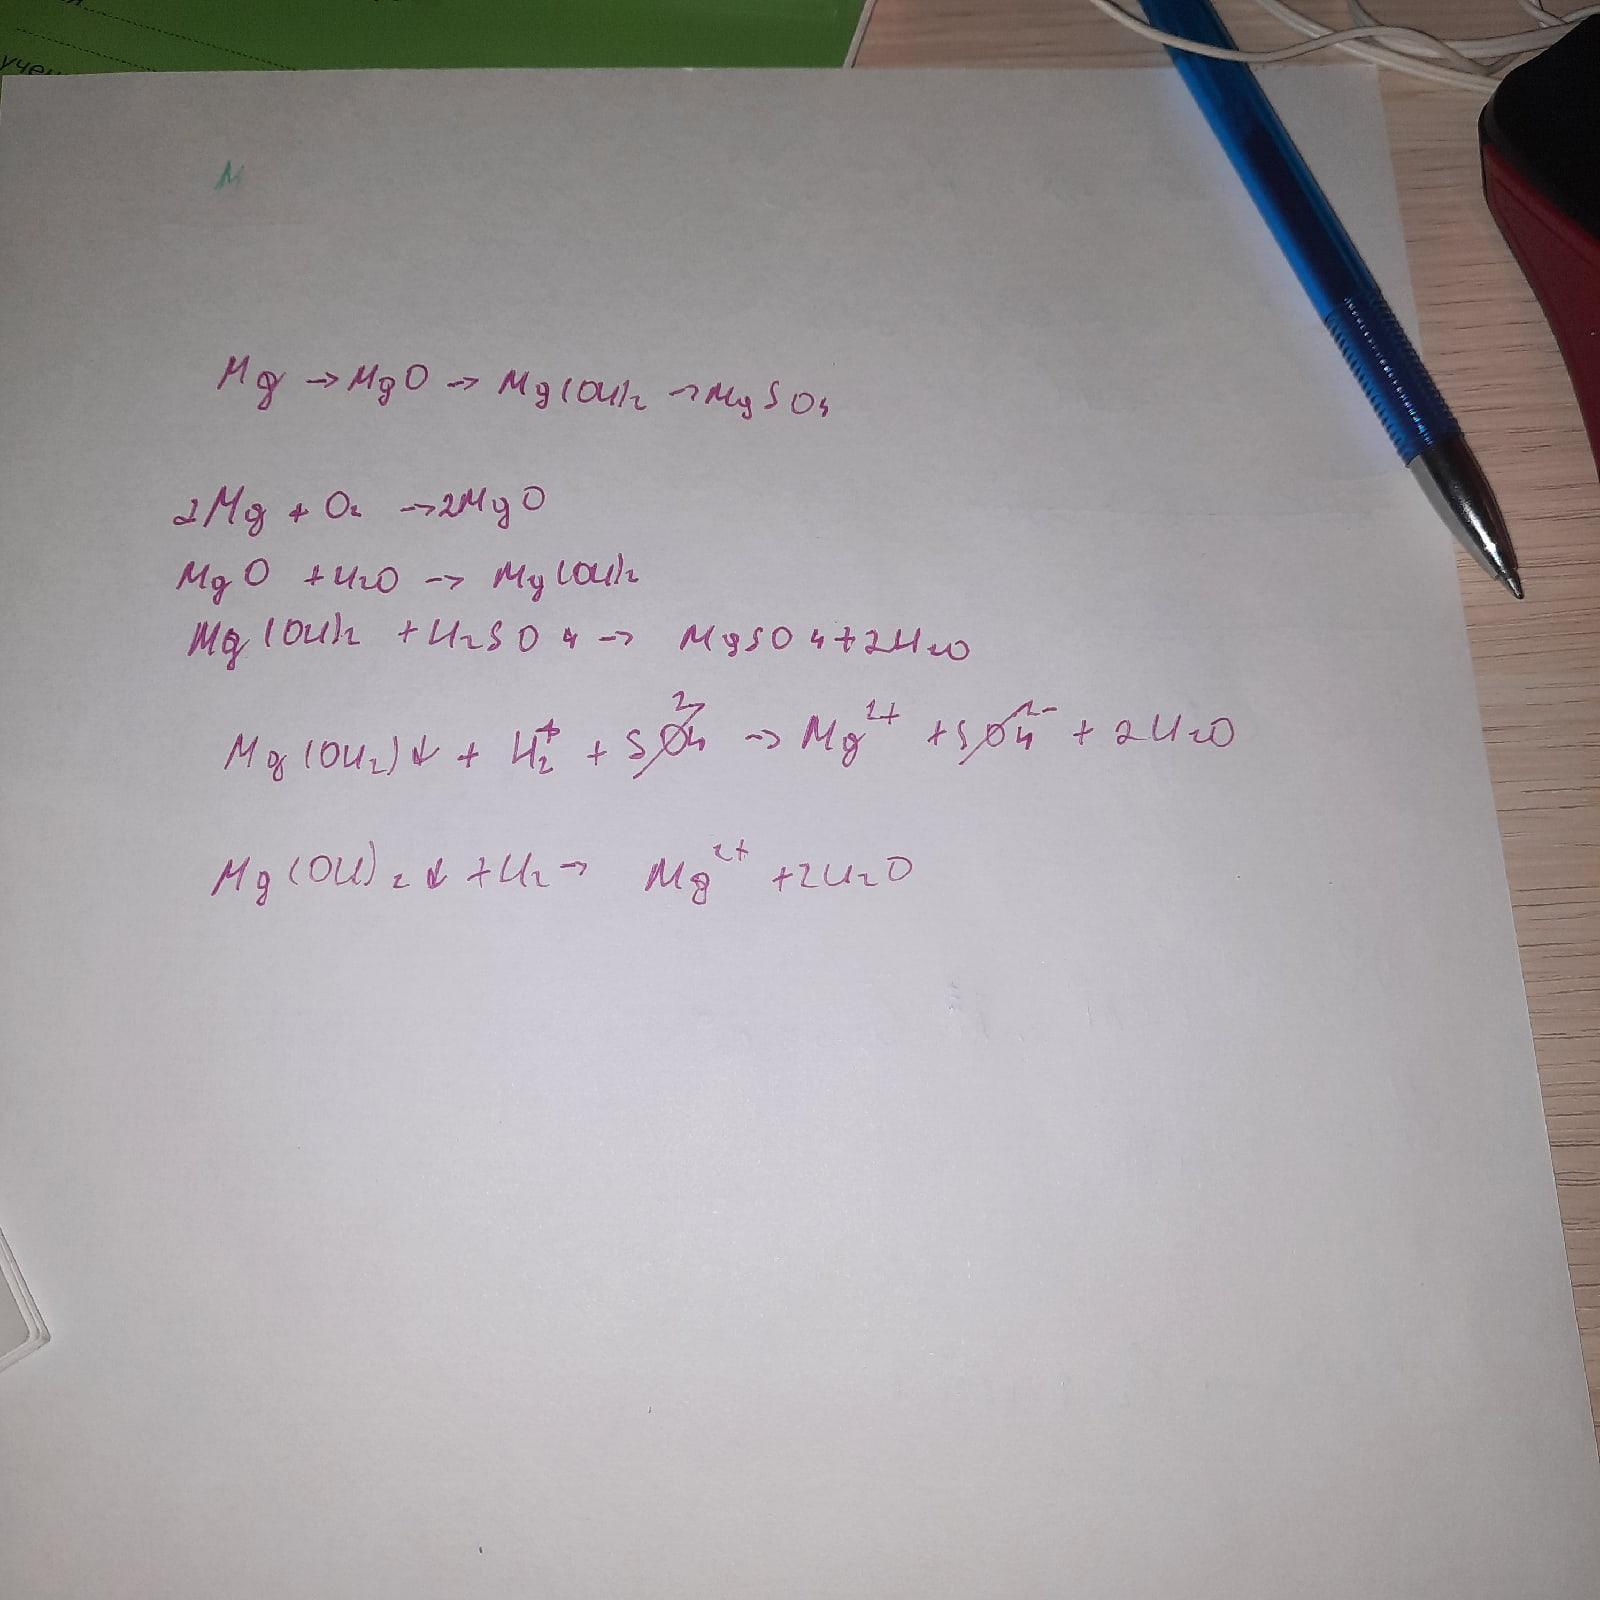 учен
М
Mg → MgO → Mg(OH)2 → MgSO4
2Mg + O2 → 2MgO
MgO + H2O → Mg(OH)2
Mg(OH)2 + H2SO4 → MgSO4 + 2H2O
Mg(OH2)↓ + H2⁺ + SO4²⁻ → Mg²⁺ + SO4²⁻ + 2H2O
Mg(OH)2↓ + H2 → Mg²⁺ + 2H2O